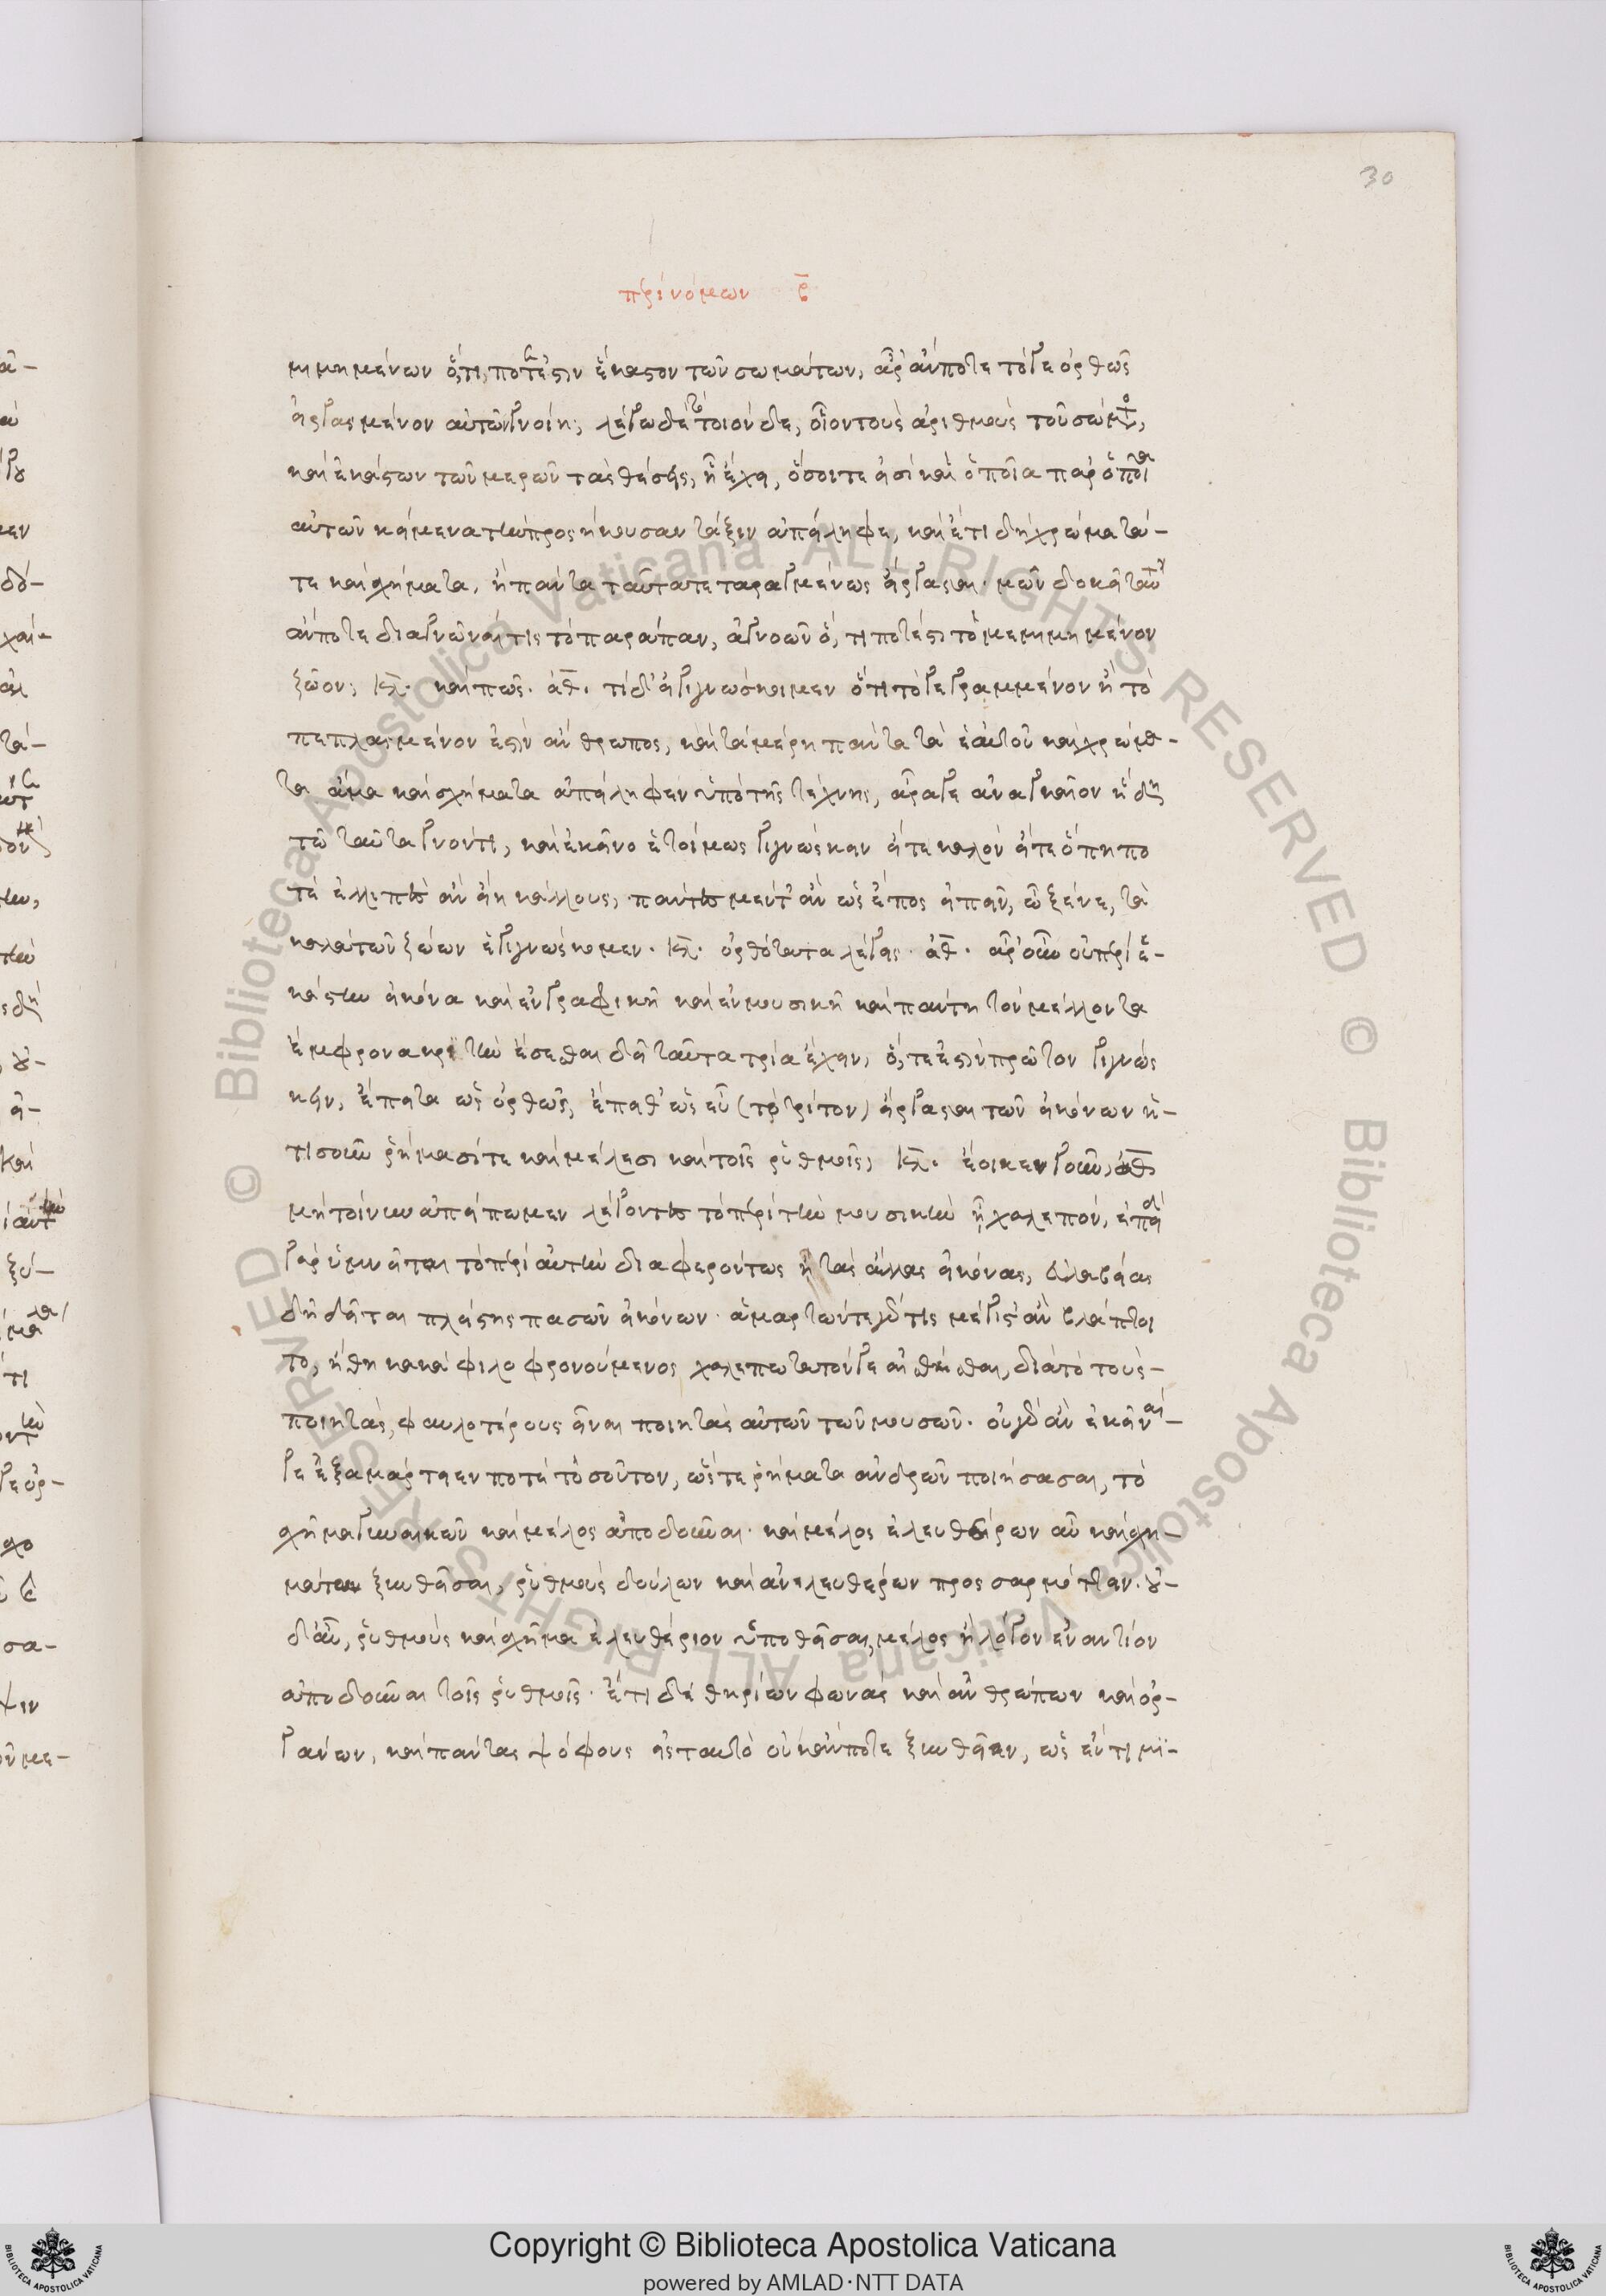 30
περὶ νόμων β̄
μιμημένων ὅ,τι ποτέ ἐστιν ἕκαστον τῶν σωμάτων, ἆρ' ἄν ποτε τό γε ὀρθῶς
εἰργασμένον αὐτῶν γνοίη; λέγω δὲ τὸ τοιόνδε, οἷον τοὺς ἀριθμοὺς τοῦ σώματος,
καὶ ἑκάστων τῶν μερῶν τὰς θέσεις, ᾗ ἔχει, ὅσοι τέ εἰσι καὶ ὁποῖα παρ' ὁποῖα
αὐτῶν κείμενα τὴν προσήκουσαν τάξιν ἀπείληφε, καὶ ἔτι δὴ χρώματά-
τε καὶ σχήματα, ἢ πάντα ταῦτα τεταραγμένως εἴργασται· μῶν δοκεῖ ταῦτ'
ἄν ποτε διαγνῶναί τις τὸ παράπαν, ἀγνοῶν ὅ, τι ποτέ ἐστι τὸ μεμιμημένον
ζῶον; κλ. καὶ πῶς. ἀθ. τί δ' εἰ γιγνώσκοιμεν ὅτι τὸ γεγραμμένον ἢ τὸ
πεπλασμένον ἐστὶν ἄνθρωπος, καὶ τὰ μέρη πάντα τὰ ἑαυτοῦ καὶ χρώμα-
τα ἅμα καὶ σχήματα ἀπείληφεν ὑπὸ τῆς τέχνης, ἆρά γε ἀναγκαῖον ἤδη
τῷ ταῦτα γνόντι, καὶ ἐκεῖνο ἑτοίμως γιγνώσκειν εἴτε καλὸν εἴτε ὅπη πο
τὲ ἐλλιπὲς ἂν εἴη κάλλους, πάντες μέντ' ἂν ὡς ἔπος εἰπεῖν, ὦ ξένε, τὰ
καλὰ τῶν ζώων ἐγιγνώσκομεν. κλ. ὀρθότατα λέγεις. ἀθ. ἆρ' οὖν οὐ περὶ ἑ-
κάστην εἰκόνα καὶ ἐν γραφικῇ καὶ ἐν μουσικῇ καὶ πάντη τὸν μέλλοντα
ἔμφρονα κριτὴν ἔσεσθαι δεῖ ταῦτα τρία ἔχειν, ὅ, τε ἐστὶ πρῶτον γιγνώσ
κειν, ἔπειτα ὡς ὀρθῶς, ἔπειθ' ὡς εὖ (τὸ τρίτον) εἴργασται τῶν εἰκόνων ἡ-
τισοῦν ῥήμασί τε καὶ μέλεσι καὶ τοῖς ῥυθμοῖς, κλ. ἔοικεν γοῦν, ἀθ
μὴ τοίνυν ἀπείπωμεν λέγοντες τὸ περὶ τὴν μουσικὴν ᾗ χαλεπόν, ἐπειδὴ
γὰρ ὑμνεῖται τὸ περὶ αὐτὴν διαφερόντως ἢ τὰς ἄλλας εἰκόνας, εὐλαβείας
δὴ δεῖται πλείστης πασῶν εἰκόνων. ἁμαρτών τε γάρ τις μέγιστ' ἂν βλάπτοι
το, ἤθη κακὰ φιλοφρονούμενος χαλεπώτατόν τε αἰσθέσθαι, διὰ τὸ τοὺς-
ποιητὰς, φαυλοτέρους εἶναι ποιητὰς αὐτῶν τῶν μουσῶν. οὐ γὰρ ἂν ἐκεῖναί-
γε ἐξαμάρτοιεν ποτὲ τὸ σοῦτον, ὥστε ῥήματα ἀνδρῶν ποιήσασαι, τὸ
σχῆμα γυναικῶν καὶ μέλος ἀποδοῦναι. καὶ μέλος ἐλευθέρων αὖ καὶ σχη-
μάτων ξυνθεῖσαι, ῥυθμοὺς δούλων καὶ ἀνελευθέρων προσαρμόττειν. οὐ-
δ' αὖ, ῥυθμοὺς καὶ σχῆμα ἐλευθέριον ὑποθεῖσαι, μέλος ἢ λόγον ἐναντίον
ἀποδοῦναι τοῖς ῥυθμοῖς. ἔτι δὲ θηρίων φωνὰς καὶ ἀνθρώπων καὶ ὀρ-
γάνων, καὶ πάντας ψόφους εἰς ταυτὸ οὐκ ἄν ποτε ξυνθεῖεν, ὡς ἕν τι μι-
Copyright © Biblioteca Apostolica Vaticana
powered by AMLAD·NTT DATA